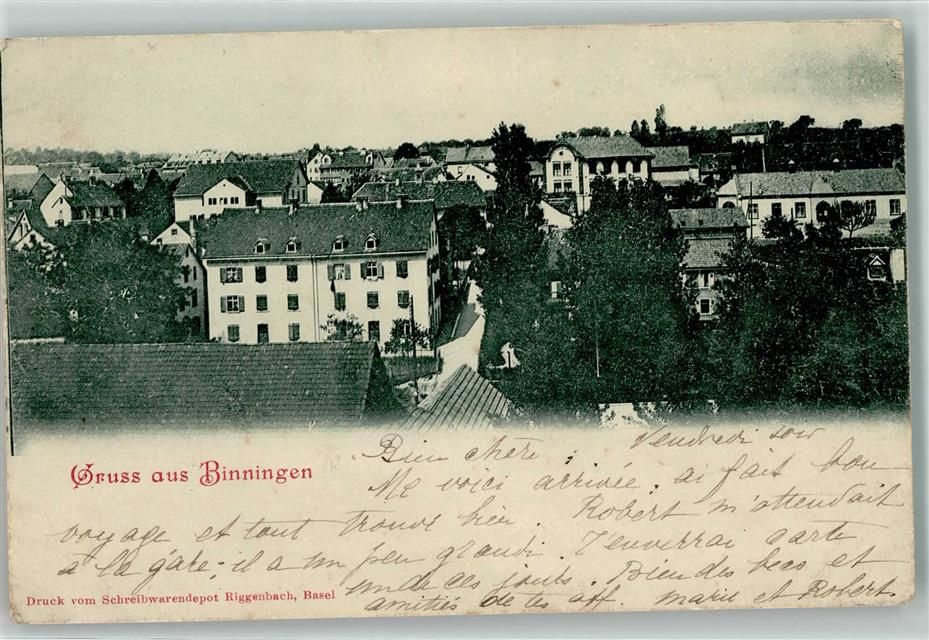 Gruss aus Binningen
Bien chère : Vendredi soir
Me voici arrivée. ai fait bon
voyage et tout trouvé bien. Robert m'attendait
à la gare; il a un peu grandi. T'enverrai carte
un de ces jours. Bien des becs et
amitiés de tes aff. Marie et Robert
Druck vom Schreibwarendepot Riggenbach, Basel